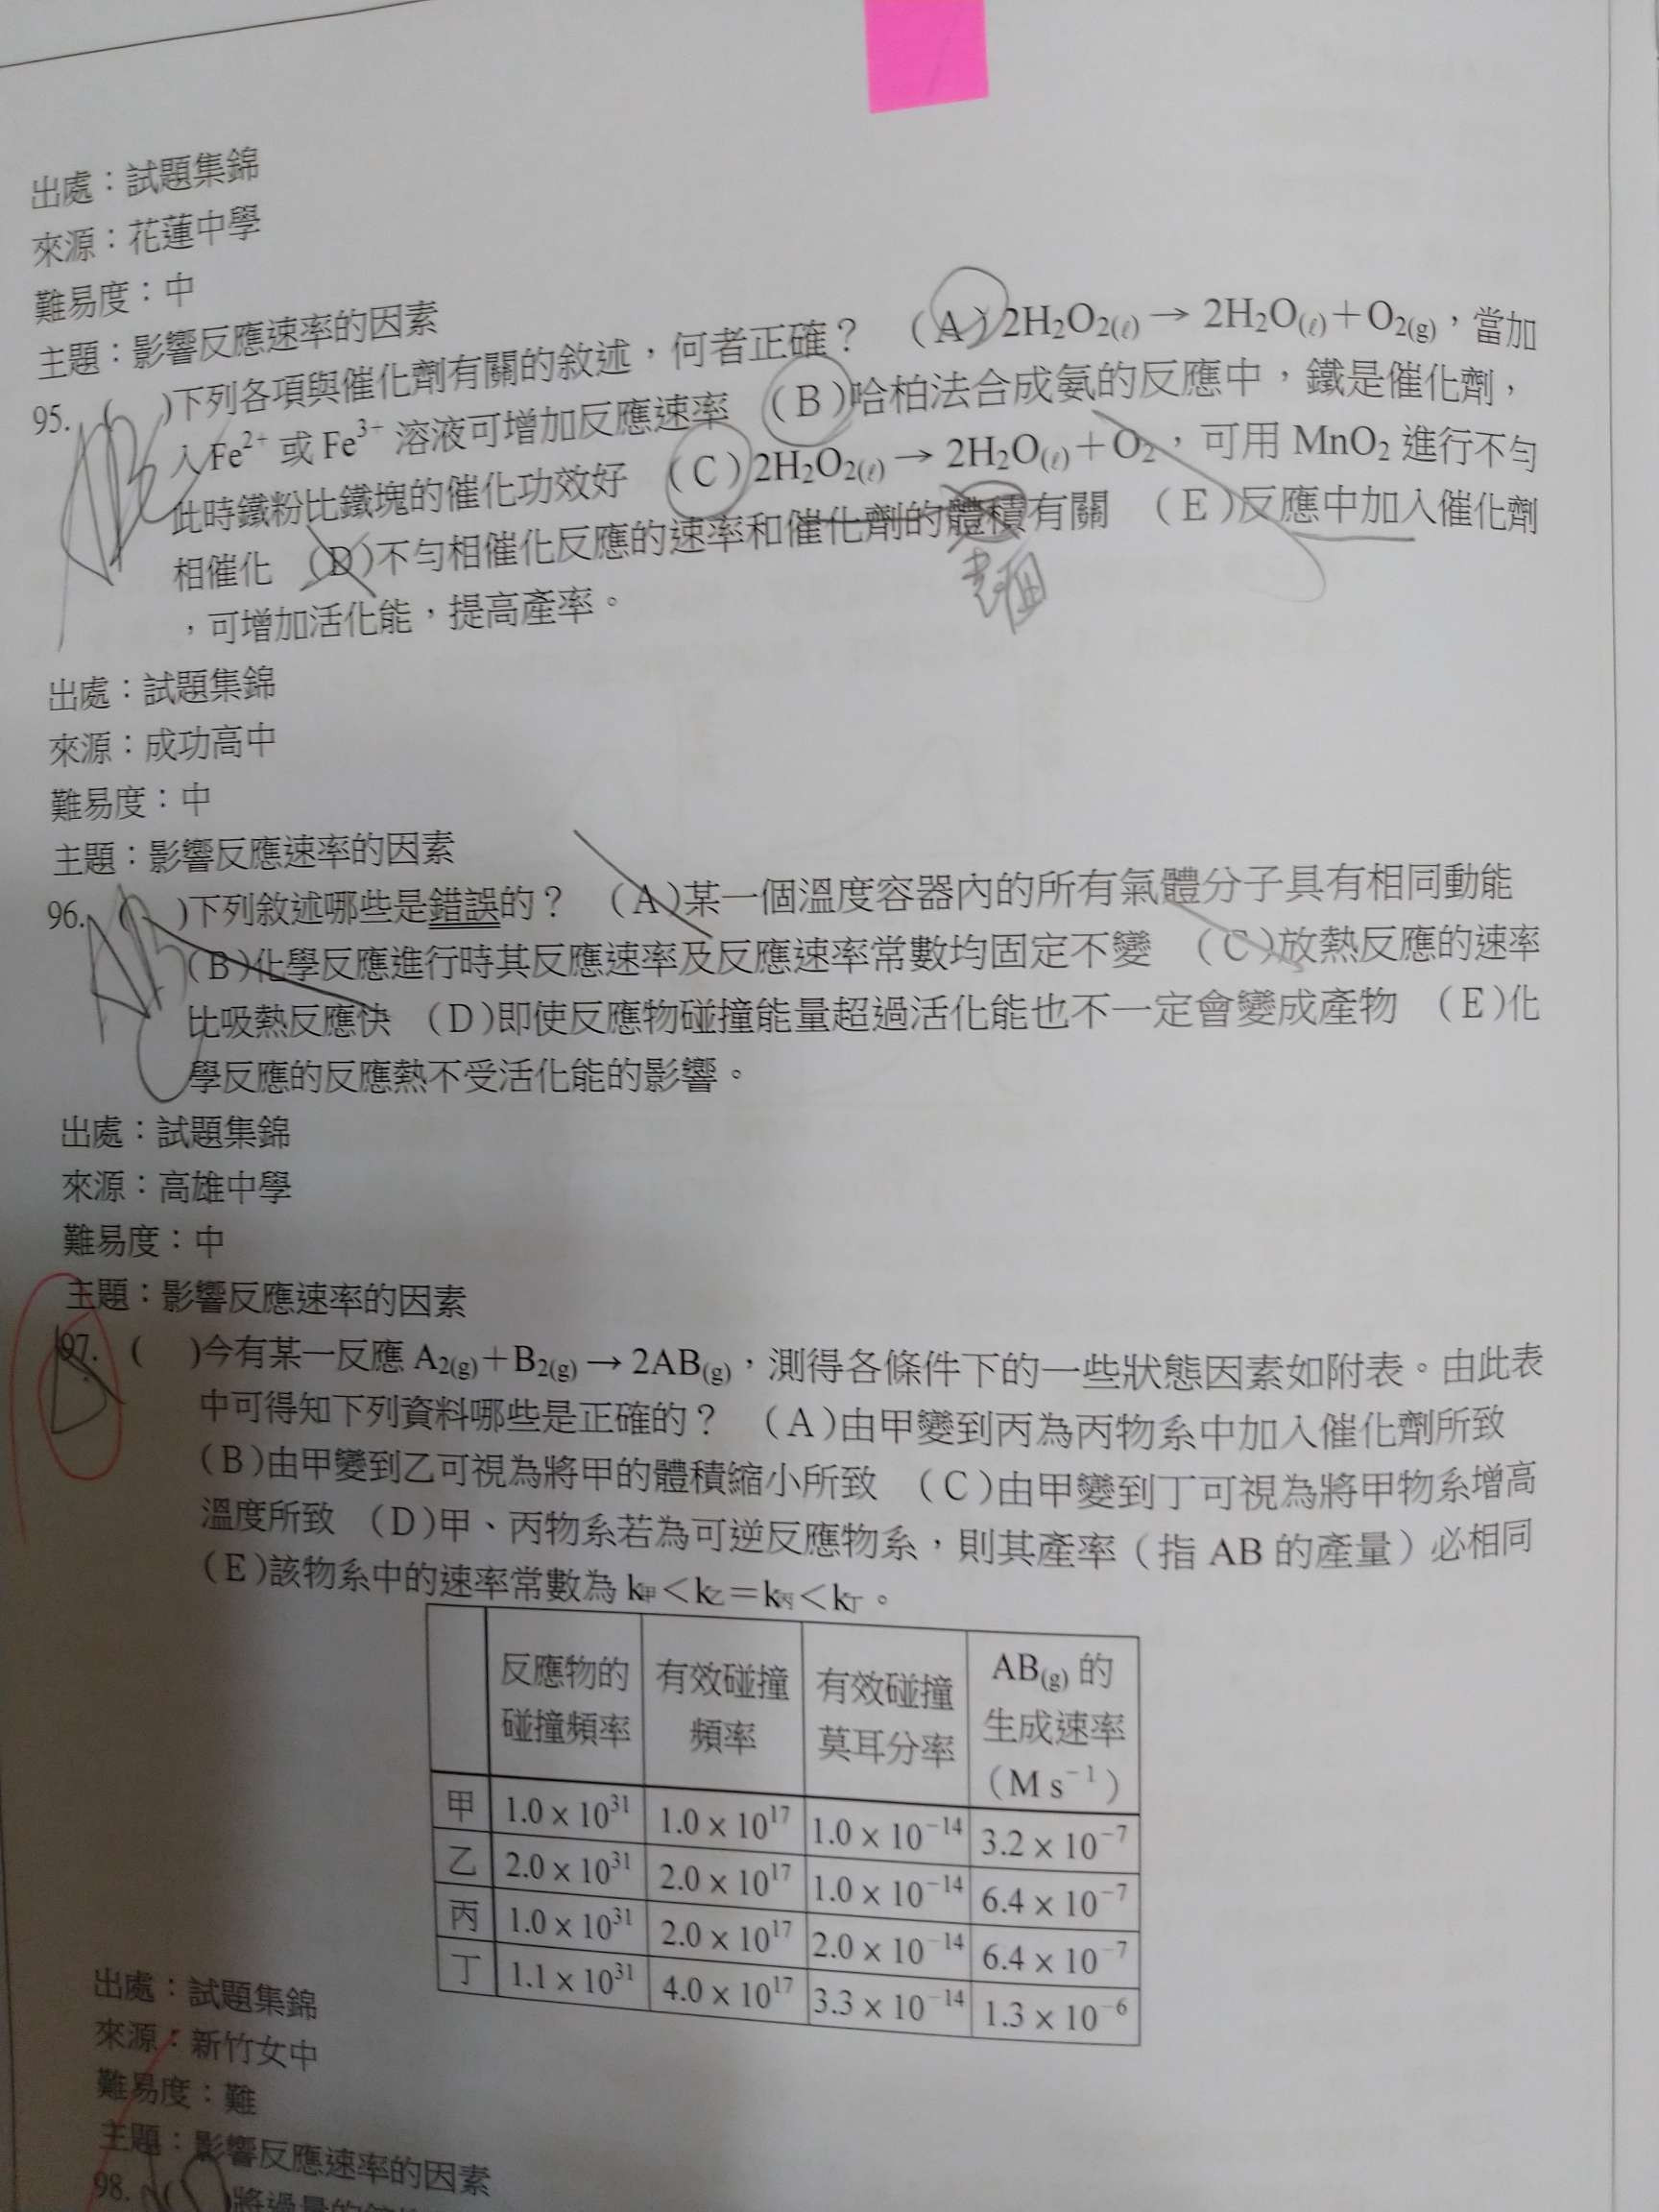 出處：試題集錦
來源：花蓮中學
難易度：中
主題：影響反應速率的因素
95. ( )下列各項與催化劑有關的敘述，何者正確？ (A)2H₂O₂(ℓ) → 2H₂O(ℓ)＋O₂(g)，當加
入 Fe²⁺ 或 Fe³⁺ 溶液可增加反應速率 (B)哈柏法合成氨的反應中，鐵是催化劑，
此時鐵粉比鐵塊的催化功效好 (C)2H₂O₂(ℓ) → 2H₂O(ℓ)＋O₂，可用 MnO₂ 進行不勻
相催化 (D)不勻相催化反應的速率和催化劑的體積有關 (E)反應中加入催化劑
表面
，可增加活化能，提高產率。
出處：試題集錦
來源：成功高中
難易度：中
主題：影響反應速率的因素
96. ( )下列敘述哪些是錯誤的？ (A)某一個溫度容器內的所有氣體分子具有相同動能
(B)化學反應進行時其反應速率及反應速率常數均固定不變 (C)放熱反應的速率
比吸熱反應快 (D)即使反應物碰撞能量超過活化能也不一定會變成產物 (E)化
學反應的反應熱不受活化能的影響。
出處：試題集錦
來源：高雄中學
難易度：中
主題：影響反應速率的因素
97. ( )今有某一反應 A₂(g)＋B₂(g) → 2AB(g)，測得各條件下的一些狀態因素如附表。由此表
中可得知下列資料哪些是正確的？ (A)由甲變到丙為丙物系中加入催化劑所致
(B)由甲變到乙可視為將甲的體積縮小所致 (C)由甲變到丁可視為將甲物系增高
溫度所致 (D)甲、丙物系若為可逆反應物系，則其產率（指 AB 的產量）必相同
(E)該物系中的速率常數為 k甲＜k乙＝k丙＜k丁。
反應物的碰撞頻率 有效碰撞頻率 有效碰撞莫耳分率 AB(g) 的生成速率（M s⁻¹）
甲 1.0 × 10³¹ 1.0 × 10¹⁷ 1.0 × 10⁻¹⁴ 3.2 × 10⁻⁷
乙 2.0 × 10³¹ 2.0 × 10¹⁷ 1.0 × 10⁻¹⁴ 6.4 × 10⁻⁷
丙 1.0 × 10³¹ 2.0 × 10¹⁷ 2.0 × 10⁻¹⁴ 6.4 × 10⁻⁷
丁 1.1 × 10³¹ 4.0 × 10¹⁷ 3.3 × 10⁻¹⁴ 1.3 × 10⁻⁶
出處：試題集錦
來源：新竹女中
難易度：難
主題：影響反應速率的因素
98. ( )將過量的